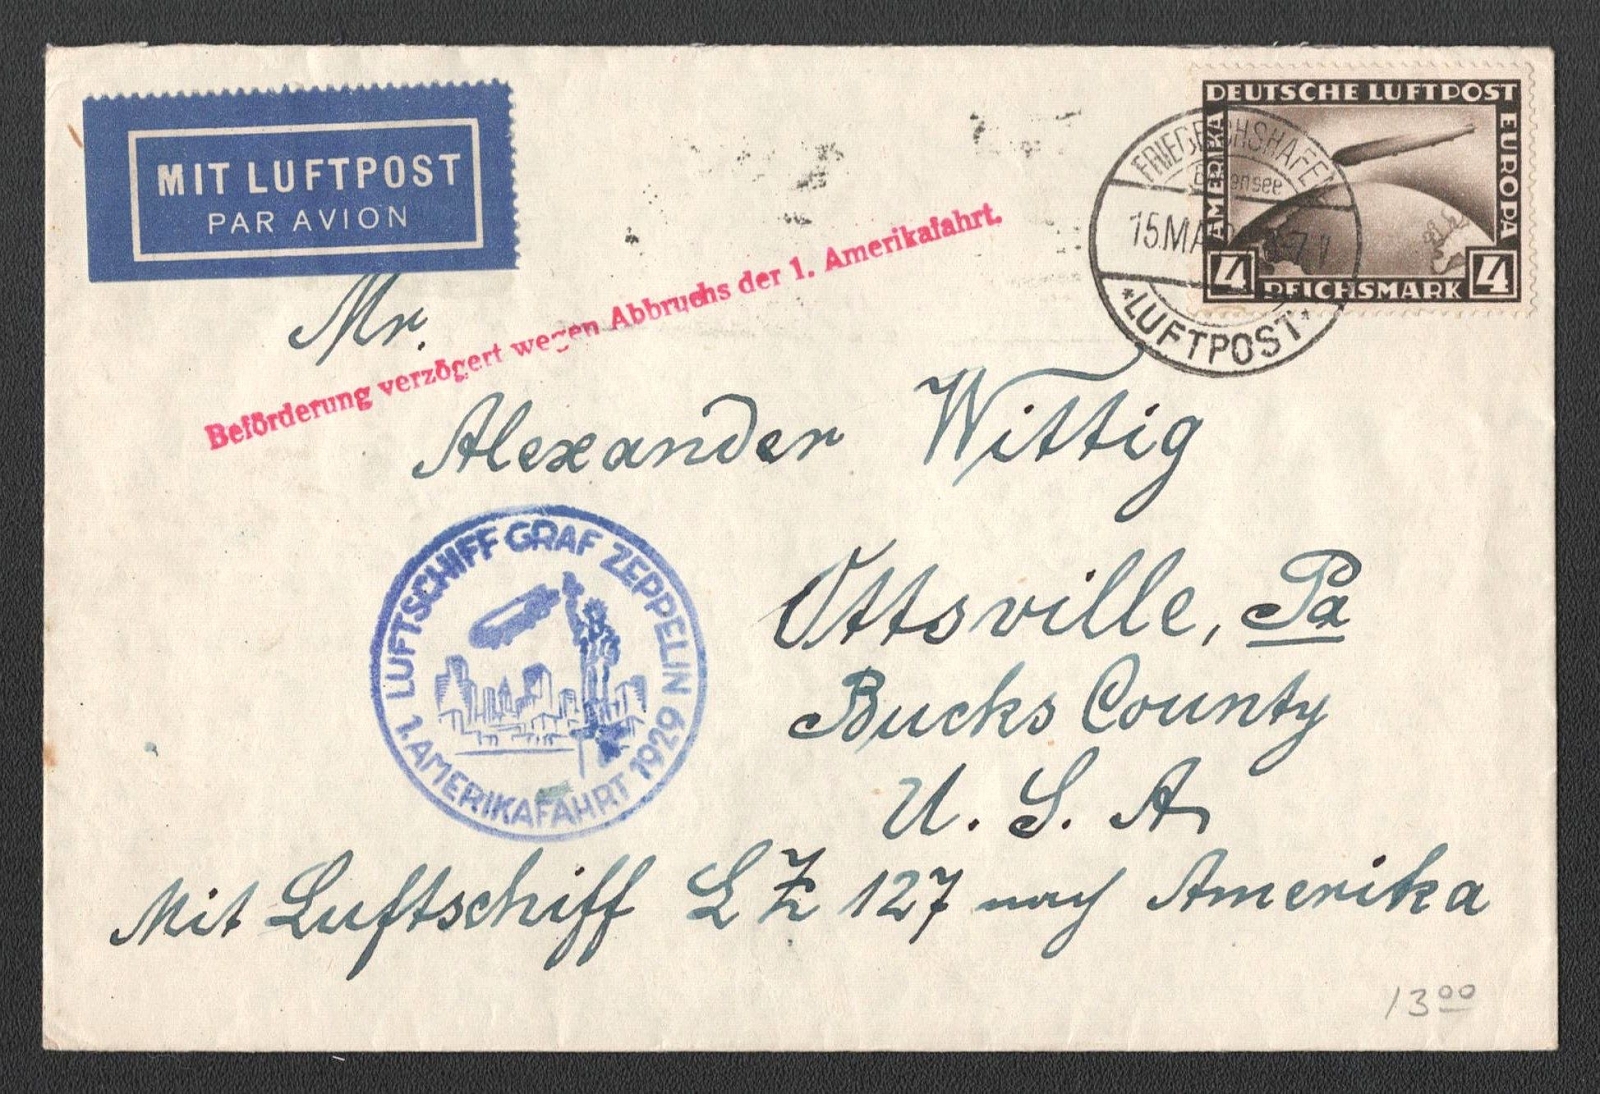 MIT LUFTPOST
PAR AVION
DEUTSCHE LUFTPOST
AMERIKA
EUROPA
4 REICHSMARK 4
FRIEDRICHSHAFEN
Bodensee
15.MA
*LUFTPOST*
Beförderung verzögert wegen Abbruchs der 1. Amerikafahrt.
Mr.
Alexander Wittig
Ottsville, Pa
Bucks County
U. S. A.
LUFTSCHIFF GRAF ZEPPELIN
1. AMERIKAFAHRT 1929
Mit Luftschiff L Z 127 nach Amerika
13 00